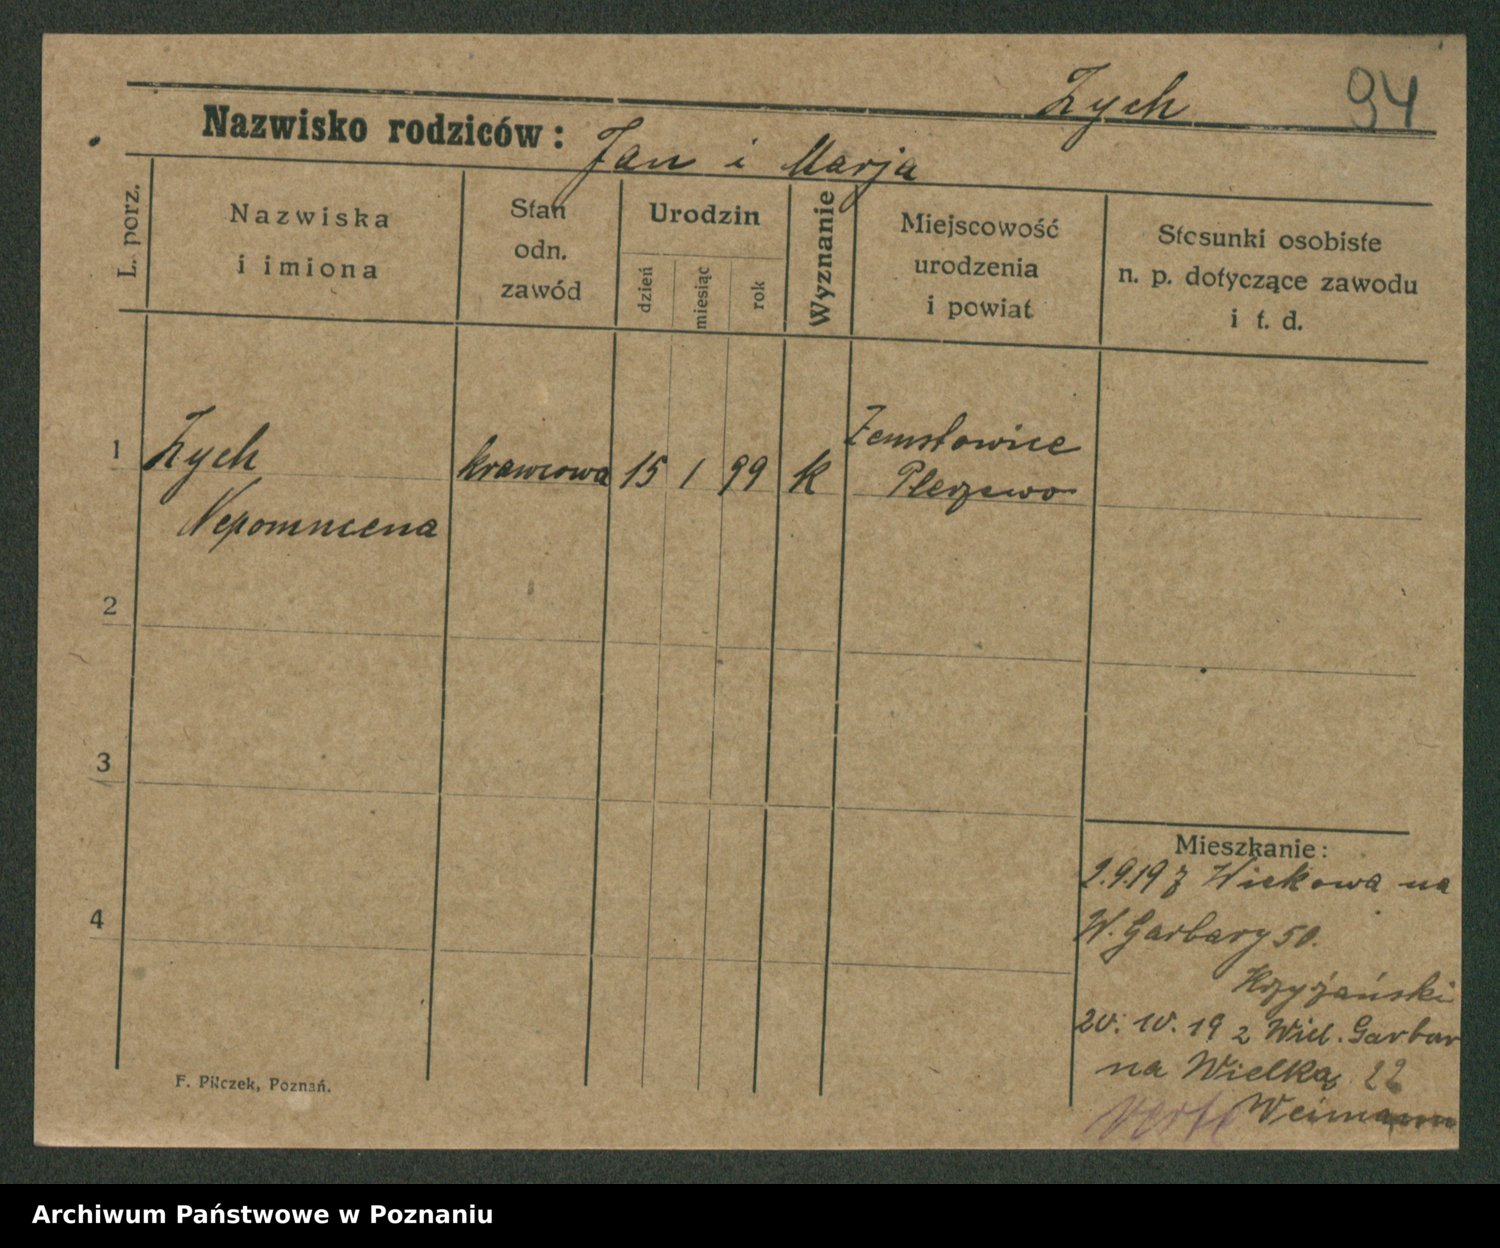 Zych
94
Nazwisko rodziców: Jan i Marja
L. porz.
Nazwiska
i imiona
Stan
odn.
zawód
Urodzin
dzień
miesiąc
rok
Wyznanie
Miejscowość
urodzenia
i powiat
Stosunki osobiste
n. p. dotyczące zawodu
i t. d.
1 Zych krawcowa 15 1 99 k Zemsłowice
Nepomucena Plerzewo
2
3
4
Mieszkanie:
2.9.19 z Wiekowa na
W. Garbary 50.
Krzyżański
20. 10. 19 z Wiel. Garbar
na Wielką 22
verte Weimann
F. Pilczek, Poznań.
Archiwum Państwowe w Poznaniu